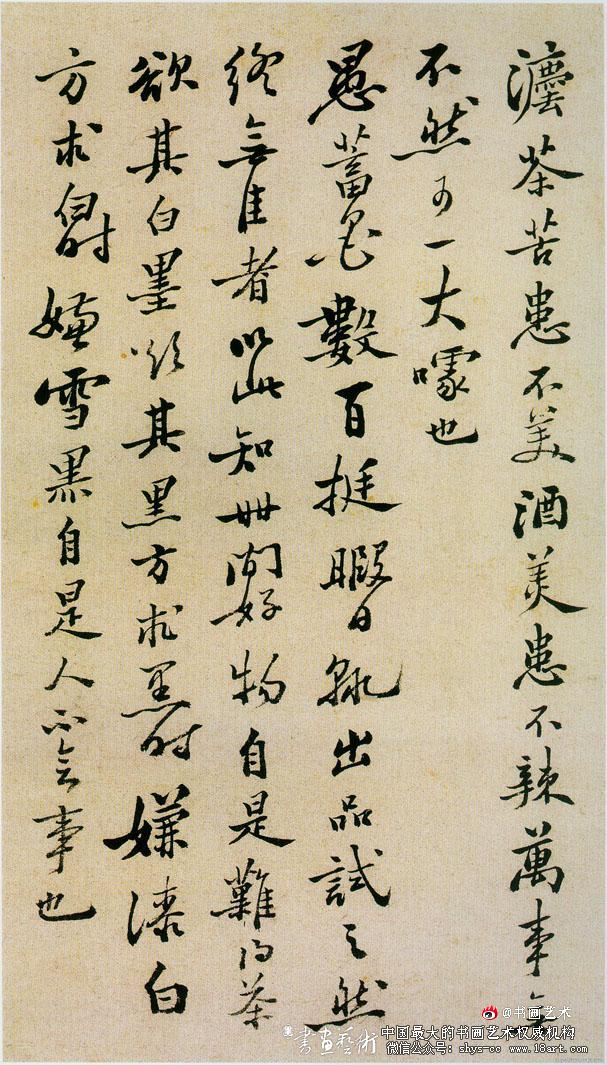 茶苦患不美酒美患不辣萬事無
不然可一大噱也
愚蓄墨數百挺暇日輒出品試之然
終無佳者以此知世間好物自是難得茶
欲其白墨欲其黑方求黑時嫌漆白
方求白時嫌雪黑自是人不會事也
@书画艺术
書畫藝術 中国最大的书画艺术权威机构
微信公众号: shys-cc www.18art.com